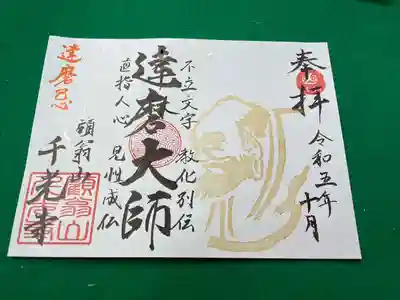 奉拝
令和五年
十月
不立文字 教化列伝
達磨大師
直指人心 見性成仏
達磨忌
顧翁山
千光寺